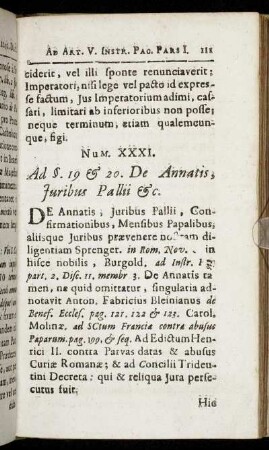 AD ART. V. INSTR. PAC. PARS I. 111
ciderit, vel illi sponte renunciaverit;
Imperatori, nisi lege vel pacto id expres-
se factum, Jus Imperatorium adimi, cas-
sari, limitari ab inferioribus non posse;
neque terminum, etiam qualemcun-
que, figi.
NUM. XXXI.
Ad §. 19 & 20. De Annatis,
Juribus Pallii &c.
DE Annatis, Juribus Pallii, Con-
firmationibus, Mensibus Papalibus,
aliisque Juribus prævenere nostram di-
ligentiam Sprenget. in nom. Nov. in
hisce nobilis, Burgold. ad Instr.
part. 2. Disc. 11. membr 3. De Annatis ta-
men, ne quid omittatur, singulatia ad-
notavit Anton. Fabricius Bleinianus de
Benef. Eccles. pag. 121, 122 & 123. Carol,
Molinæ, ad SCtum Franciæ contra abusus
Paparum. pag. 199, & seq. Ad Edictum Hen-
rici II. contra Parvas datas & abusus
Curiæ Romanæ; & ad Concilii Triden-
tini Decreta: qui & reliqua Jura perse-
cutus fuit.
Hic